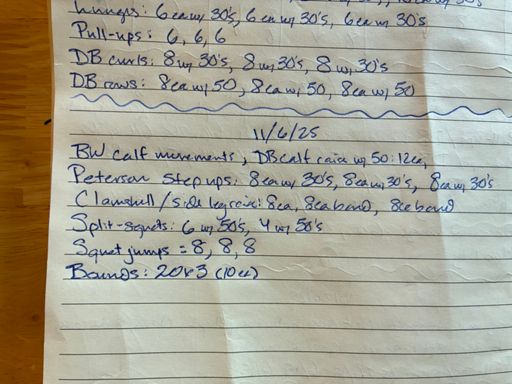 Lunges: 6 ea w/ 30's, 6 ea w/ 30's, 6 ea w/ 30's
Pull-ups: 6, 6, 6
DB curls: 8 w/ 30's, 8 w/ 30's, 8 w/ 30's
DB rows: 8 ea w/ 50, 8 ea w/ 50, 8 ea w/ 50
11/6/25
BW calf movements, DB calf raise w/ 50: 12 ea,
Peterson Step ups: 8 ea w/ 30's, 8 ea w/ 30's, 8 ea w/ 30's
Clamshell / side leg raise: 8 ea, 8 ea band, 8 ea band
Split-squats: 6 w/ 50's, 4 w/ 50's
Squat jumps = 8, 8, 8
Bounds: 20x3 (10 ea)